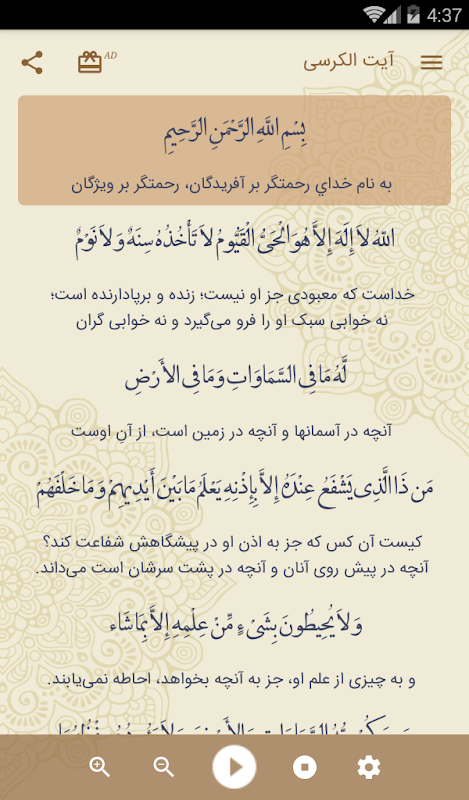 4:37
آیت الکرسی
AD
بِسْمِ اللَّهِ الرَّحْمَنِ الرَّحِيمِ
به نام خداي رحمتگر بر آفریدگان، رحمتگر بر ویژگان
اللّهُ لاَ إِلَهَ إِلاَّ هُوَ الْحَيُّ الْقَيُّومُ لاَ تَأْخُذُهُ سِنَةٌ وَلاَ نَوْمٌ
خداست که معبودی جز او نیست؛ زنده و برپادارنده است؛
نه خوابی سبک او را فرو می‌گیرد و نه خوابی گران
لَّهُ مَا فِي السَّمَاوَاتِ وَمَا فِي الأَرْضِ
آنچه در آسمانها و آنچه در زمین است، از آنِ اوست
مَن ذَا الَّذِي يَشْفَعُ عِنْدَهُ إِلاَّ بِإِذْنِهِ يَعْلَمُ مَا بَيْنَ أَيْدِيهِمْ وَمَا خَلْفَهُمْ
کیست آن کس که جز به اذن او در پیشگاهش شفاعت کند؟
آنچه در پیش روی آنان و آنچه در پشت سرشان است می‌داند.
وَلاَ يُحِيطُونَ بِشَيْءٍ مِّنْ عِلْمِهِ إِلاَّ بِمَا شَاء
و به چیزی از علم او، جز به آنچه بخواهد، احاطه نمی‌یابند.